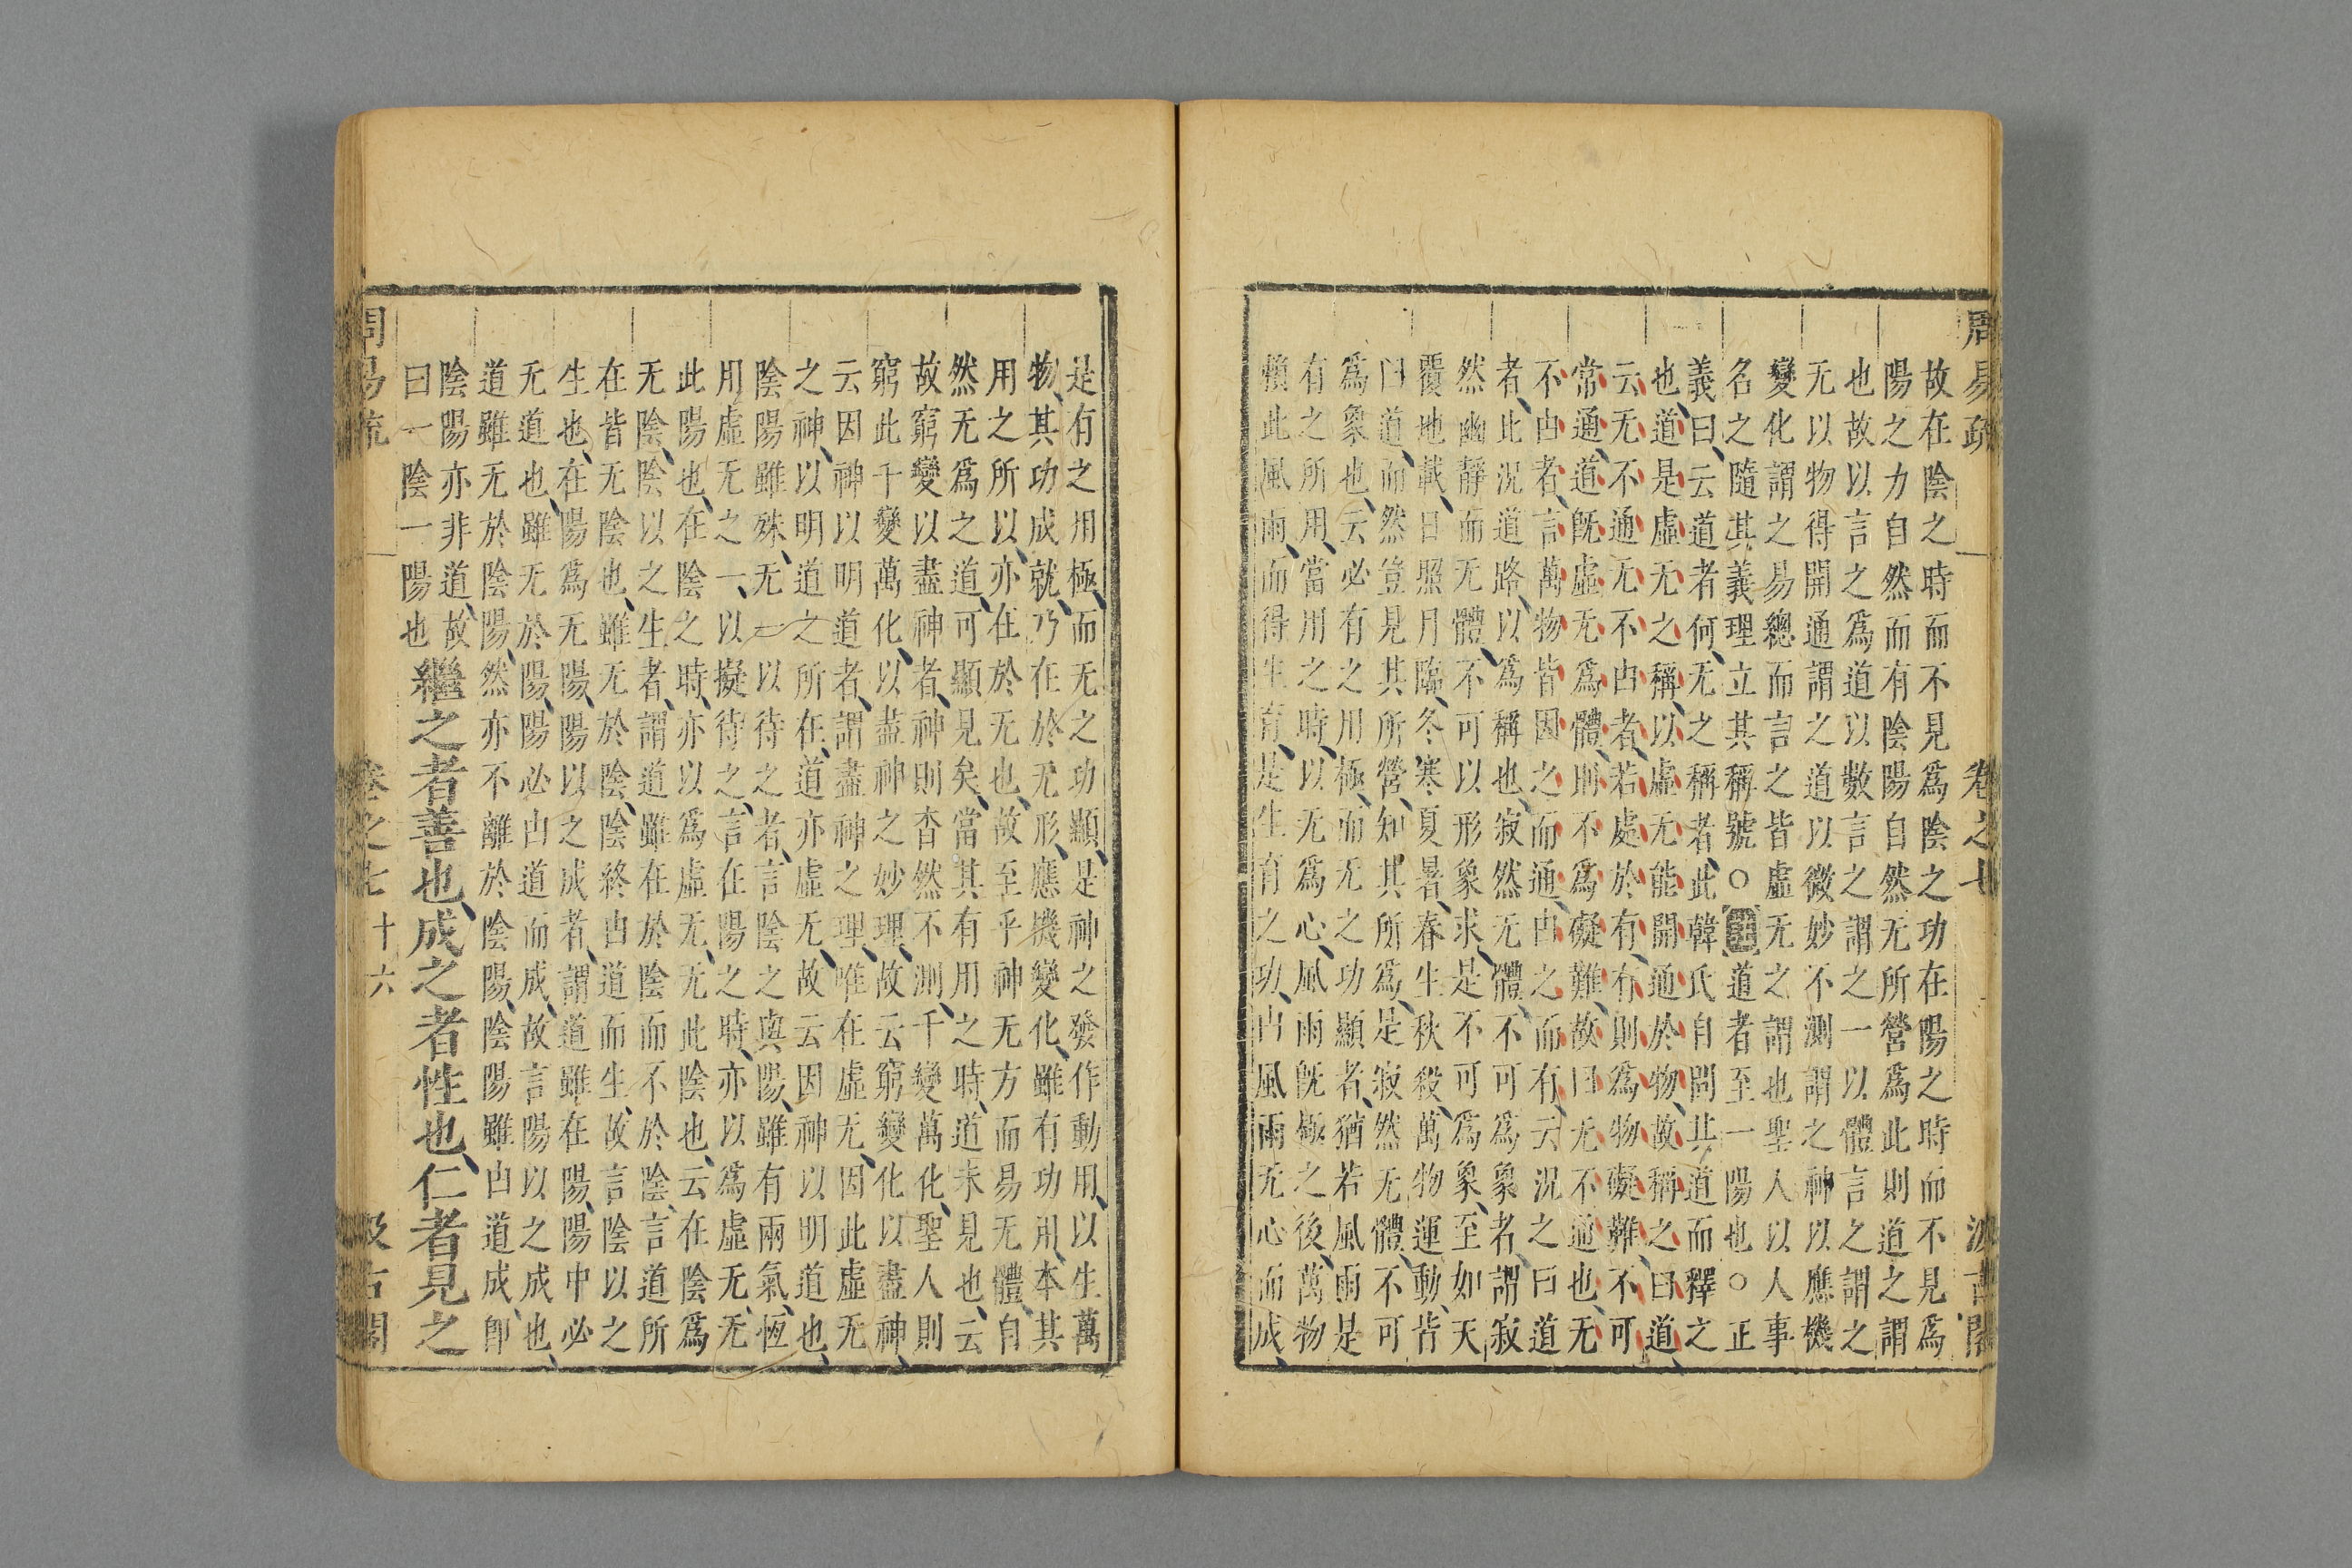 周易疏 卷之七 汲古閣
故在陰之時而不見爲陰之功在陽之時而不見爲
陽之力自然而有陰陽自然无所營爲此則道之謂
也故以言之爲道以數言之謂之一以體言之謂之
无以物得開通謂之道以微妙不測謂之神以應機
變化謂之易總而言之皆虛无之謂也聖人以人事
名之隨其義理立其稱號○道者至一陽也○正
義曰云道者何无之稱者此韓氏自問其道而釋之
也道是虛无之稱以虛无能開通於物故稱之曰道
云无不通无不由者若處於有有則爲物礙難不可
常通道旣虛无爲體則不爲礙難故曰无不通也无
不由者言萬物皆因之而通由之而有云況之曰道
者此況道路以爲稱也寂然无體不可爲象者謂寂
然幽靜而无體不可以形象求是不可爲象至如天
覆地載日照月臨冬寒夏暑春生秋殺萬物運動皆
由道而然豈見其所營知其所爲是寂然无體不可
爲象也云必有之用極而无之功顯者猶若風雨是
有之所用當用之時以无爲心風雨旣極之後萬物
賴此風雨而得生育是生育之功由風雨无心而成
是有之用極而无之功顯是神之發作動用以生萬
物其功成就乃在於无形應機變化雖有功用本其
用之所以亦在於无也故至乎神无方而易无體自
然无爲之道可顯見矣當其有用之時道未見也云
故窮變以盡神者神則杳然不測千變萬化聖人則
窮此千變萬化以盡神之妙理故云窮變化以盡神
云因神以明道者謂盡神之理唯在虛无因此虛无
之神以明道之所在道亦虛无故云因神以明道也
陰陽雖殊无一以待之者言陰之與陽雖有兩氣恆
用虛无之一以擬待之言在陽之時亦以爲虛无无
此陽也在陰之時亦以爲虛无无此陰也云在陰爲
无陰陰以之生者謂道雖在於陰而不於陰言道所
在皆无陰也雖无於陰陰終由道而生故言陰以之
生也在陽爲无陽陽以之成者謂道雖在陽陽中必
无道也雖无於陽陽必由道而成故言陽以之成也
道雖无於陰陽然亦不離於陰陽陰陽雖由道成即
陰陽亦非道故
曰一陰一陽也繼之者善也成之者性也仁者見之
周易疏 卷之七 十六 汲古閣